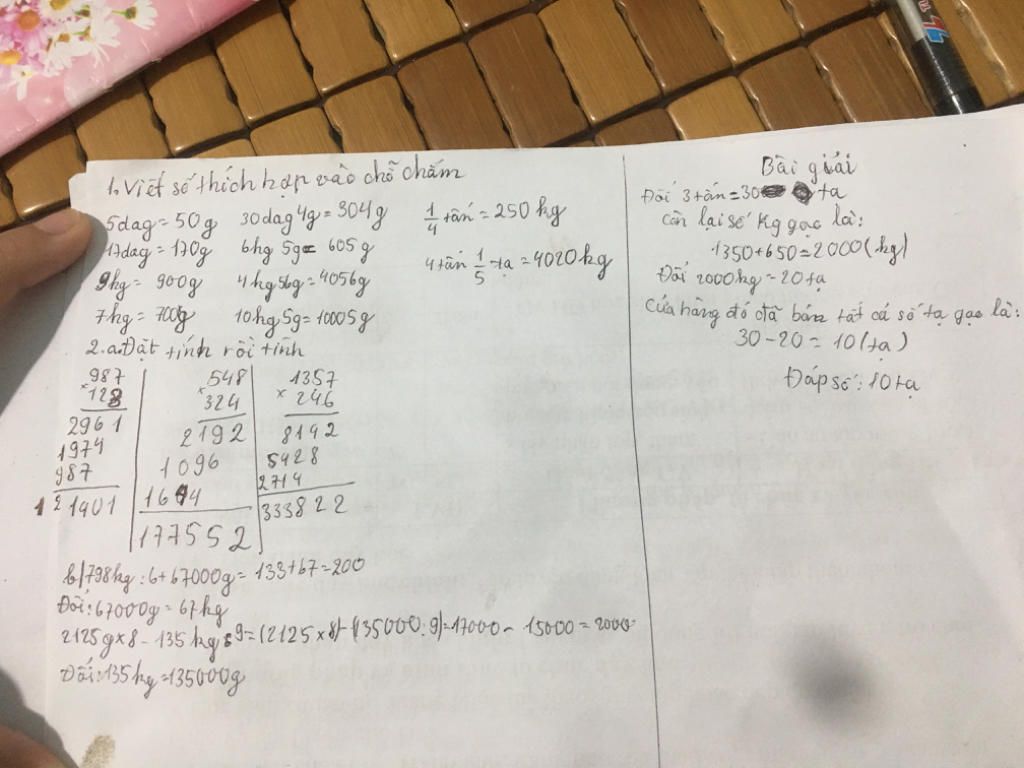 1. Viết số thích hợp vào chỗ chấm
5dag = 50g 30dag 4g = 304g 1/4 tấn = 250 kg
17dag = 170g 6hg 5g = 605g 4 tấn 1/5 tạ = 4020 kg
9hg = 900g 4kg 56g = 4056g
7hg = 700g 10kg 5g = 10005g
2. a. Đặt tính rồi tính
987 548 1357
× 123 × 324 × 246
2961 2192 8142
1974 1096 5428
987 1644 2714
121401 177552 333822
b/ 798kg : 6 + 67000g = 133 + 67 = 200
Đổi: 67000g = 67 kg
2125 g × 8 - 135 kg : 9 = (2125 × 8) - (135000 : 9) = 17000 - 15000 = 2000
Đổi: 135 kg = 135000g
Bài giải
Đổi 3 tấn = 30 tạ
Còn lại số kg gạo là:
1350 + 650 = 2000 (kg)
Đổi 2000kg = 20 tạ
Cửa hàng đó đã bán tất cả số tạ gạo là:
30 - 20 = 10 (tạ)
Đáp số: 10 tạ